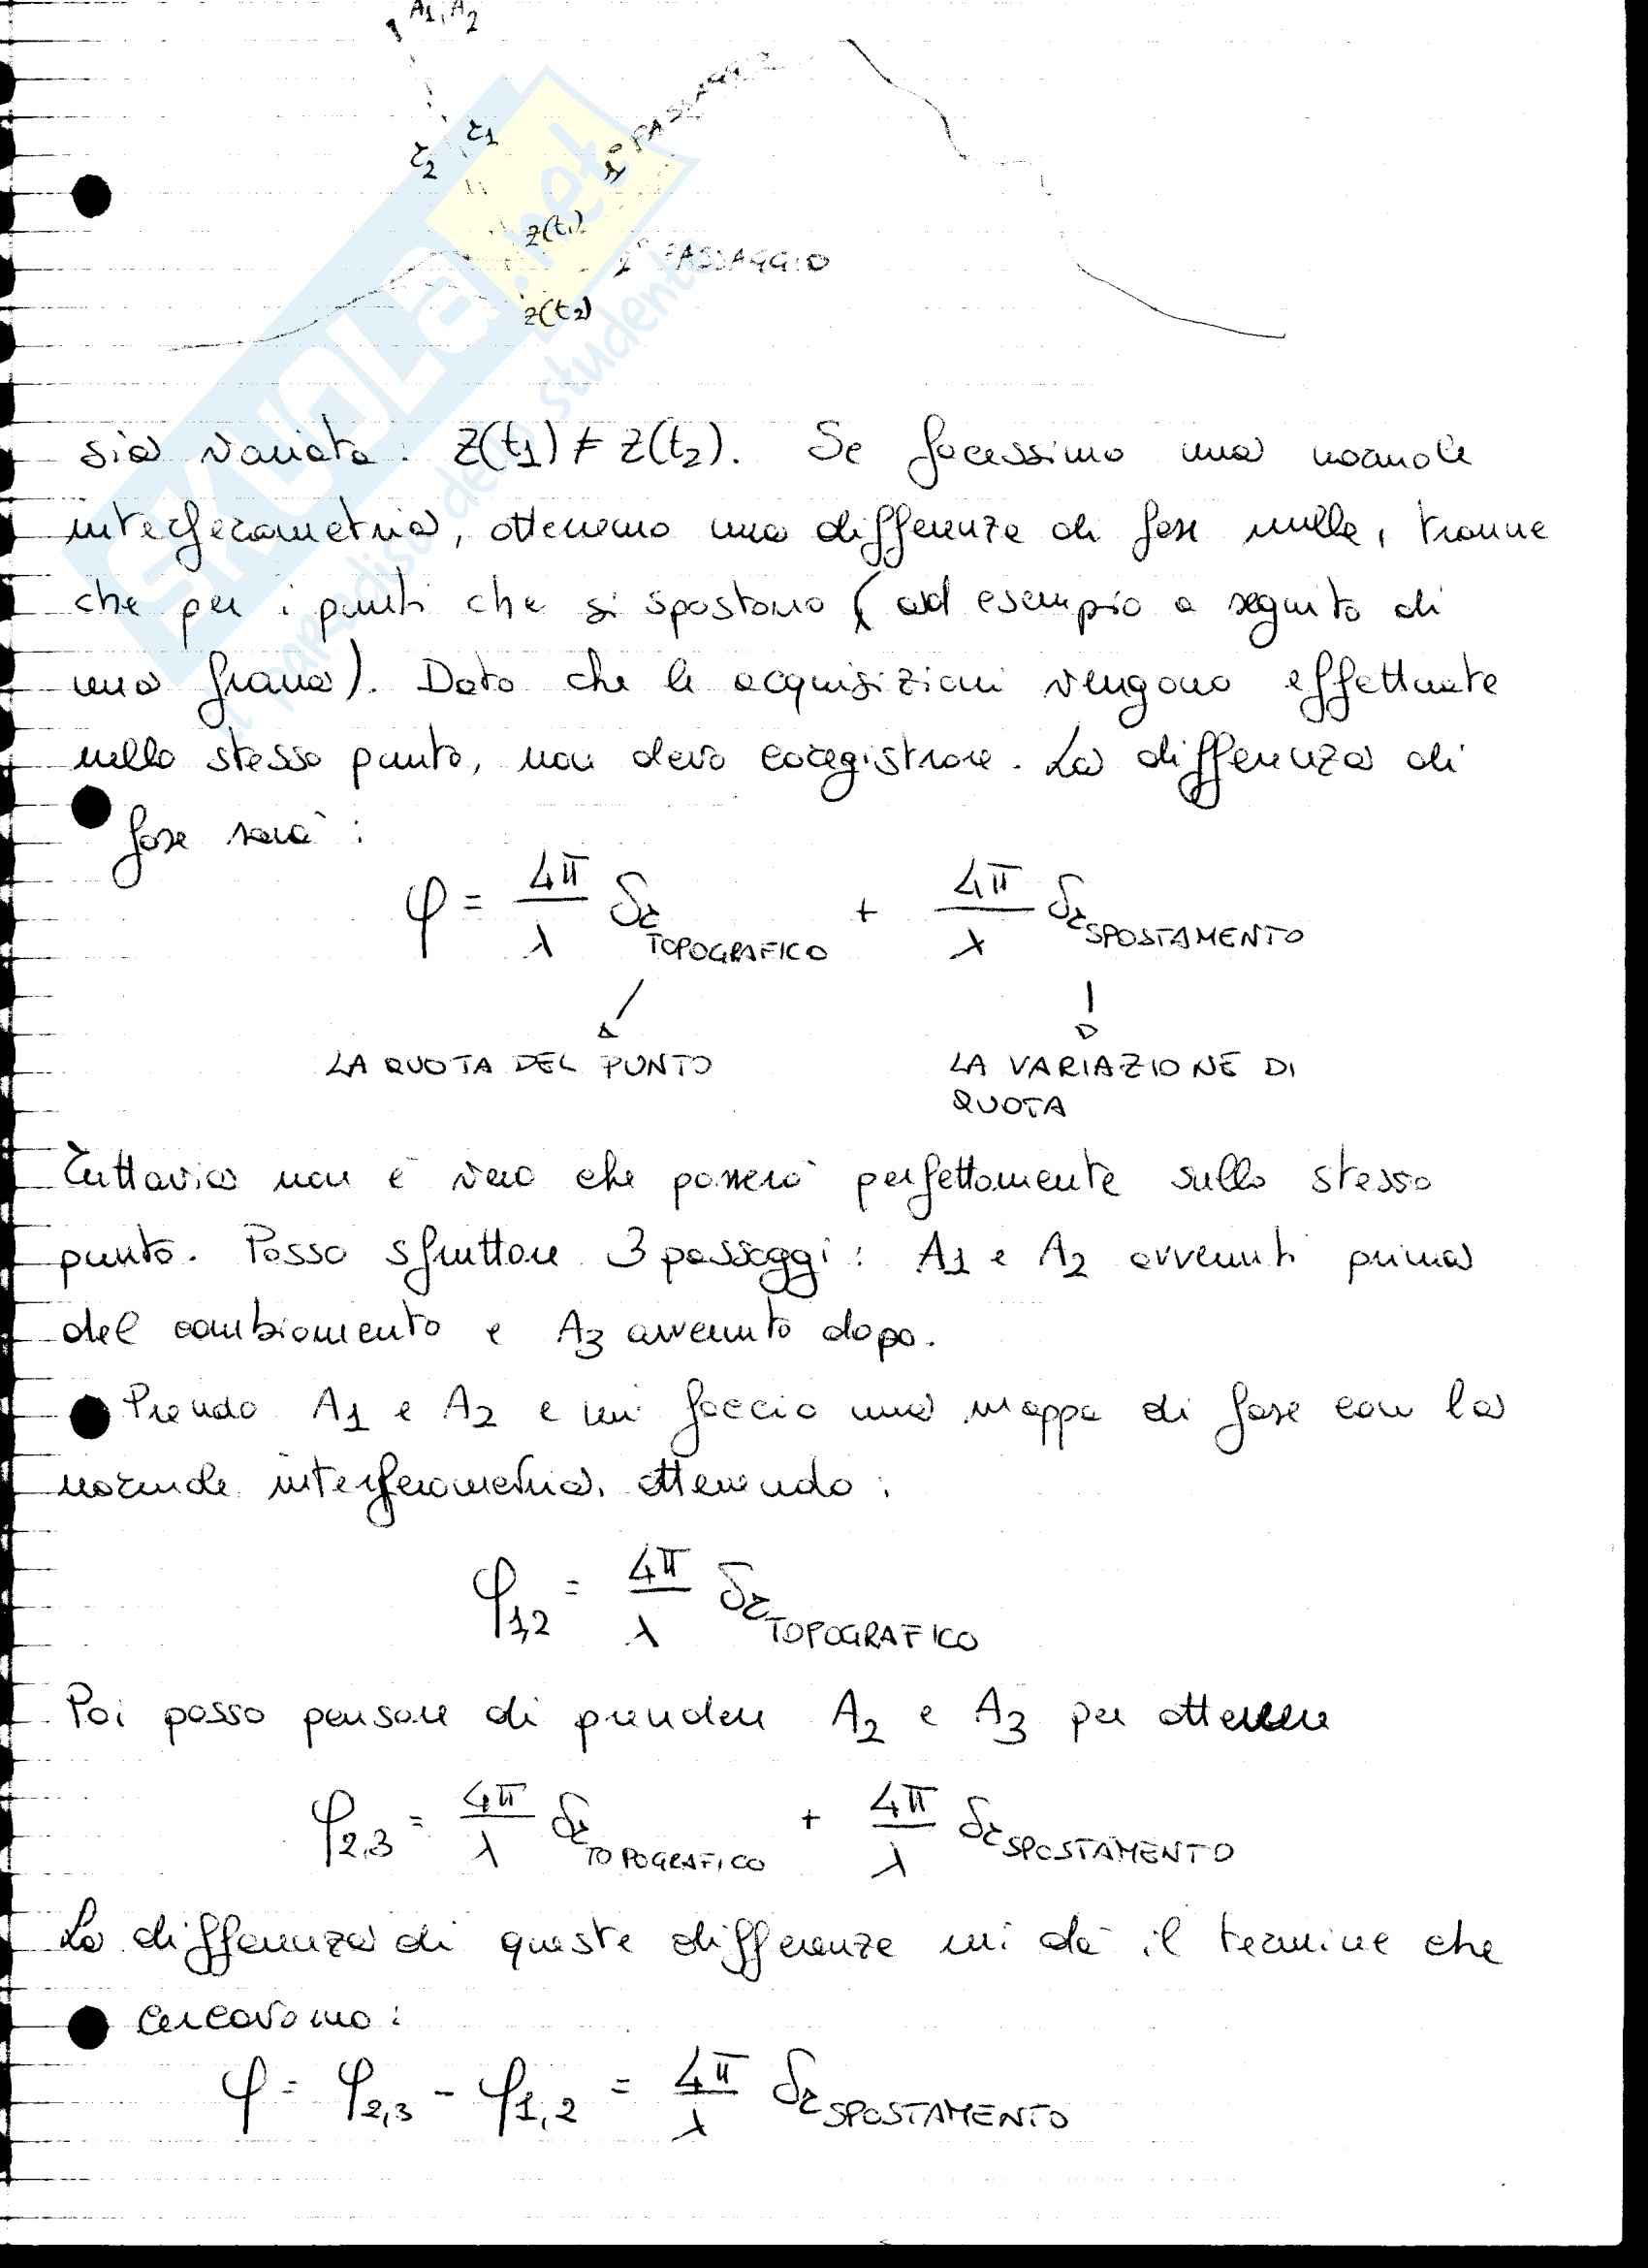 A1, A2
r2 r1
1° PASSAGGIO
z(t1)
2° PASSAGGIO
z(t2)
SKUOLA.net
il paradiso dello studente
sia variata: z(t1) ≠ z(t2). Se facessimo una normale
interferometria, otteniamo una differenza di fase nulla, tranne
che per i punti che si spostano (ad esempio a seguito di
una frana). Dato che le acquisizioni vengono effettuate
nello stesso punto, non devo coregistrare. La differenza di
fase sarà:
φ = 4π/λ δr TOPOGRAFICO + 4π/λ δr SPOSTAMENTO
LA QUOTA DEL PUNTO LA VARIAZIONE DI
QUOTA
Tuttavia non è vero che passerò perfettamente sullo stesso
punto. Posso sfruttare 3 passaggi: A1 e A2 avvenuti prima
del cambiamento e A3 avvenuto dopo.
Prendo A1 e A2 e mi faccio una mappa di fase con la
normale interferometria, ottenendo:
φ1,2 = 4π/λ δr TOPOGRAFICO
Poi posso pensare di prendere A2 e A3 per ottenere
φ2,3 = 4π/λ δr TOPOGRAFICO + 4π/λ δr SPOSTAMENTO
La differenza di queste differenze mi dà il termine che
cercavamo:
φ = φ2,3 - φ1,2 = 4π/λ δr SPOSTAMENTO